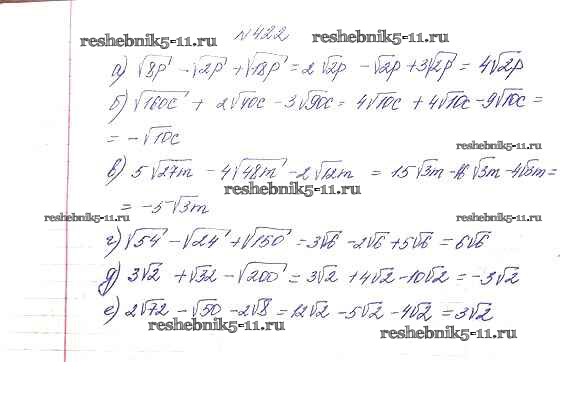 №422
reshebnik5-11.ru reshebnik5-11.ru
а) √8p - √2p + √18p = 2√2p - √2p + 3√2p = 4√2p
б) √160c + 2√40c - 3√90c = 4√10c + 4√10c - 9√10c =
= -√10c
reshebnik5-11.ru
в) 5√27m - 4√48m - 2√12m = 15√3m - 16√3m - 4√3m =
reshebnik5-11.ru
= -5√3m
reshebnik5-11.ru reshebnik5-11.ru
г) √54 - √24 + √150 = 3√6 - 2√6 + 5√6 = 6√6
д) 3√2 + √32 - √200 = 3√2 + 4√2 - 10√2 = -3√2
е) 2√72 - √50 - 2√8 = 12√2 - 5√2 - 4√2 = 3√2
reshebnik5-11.ru reshebnik5-11.ru